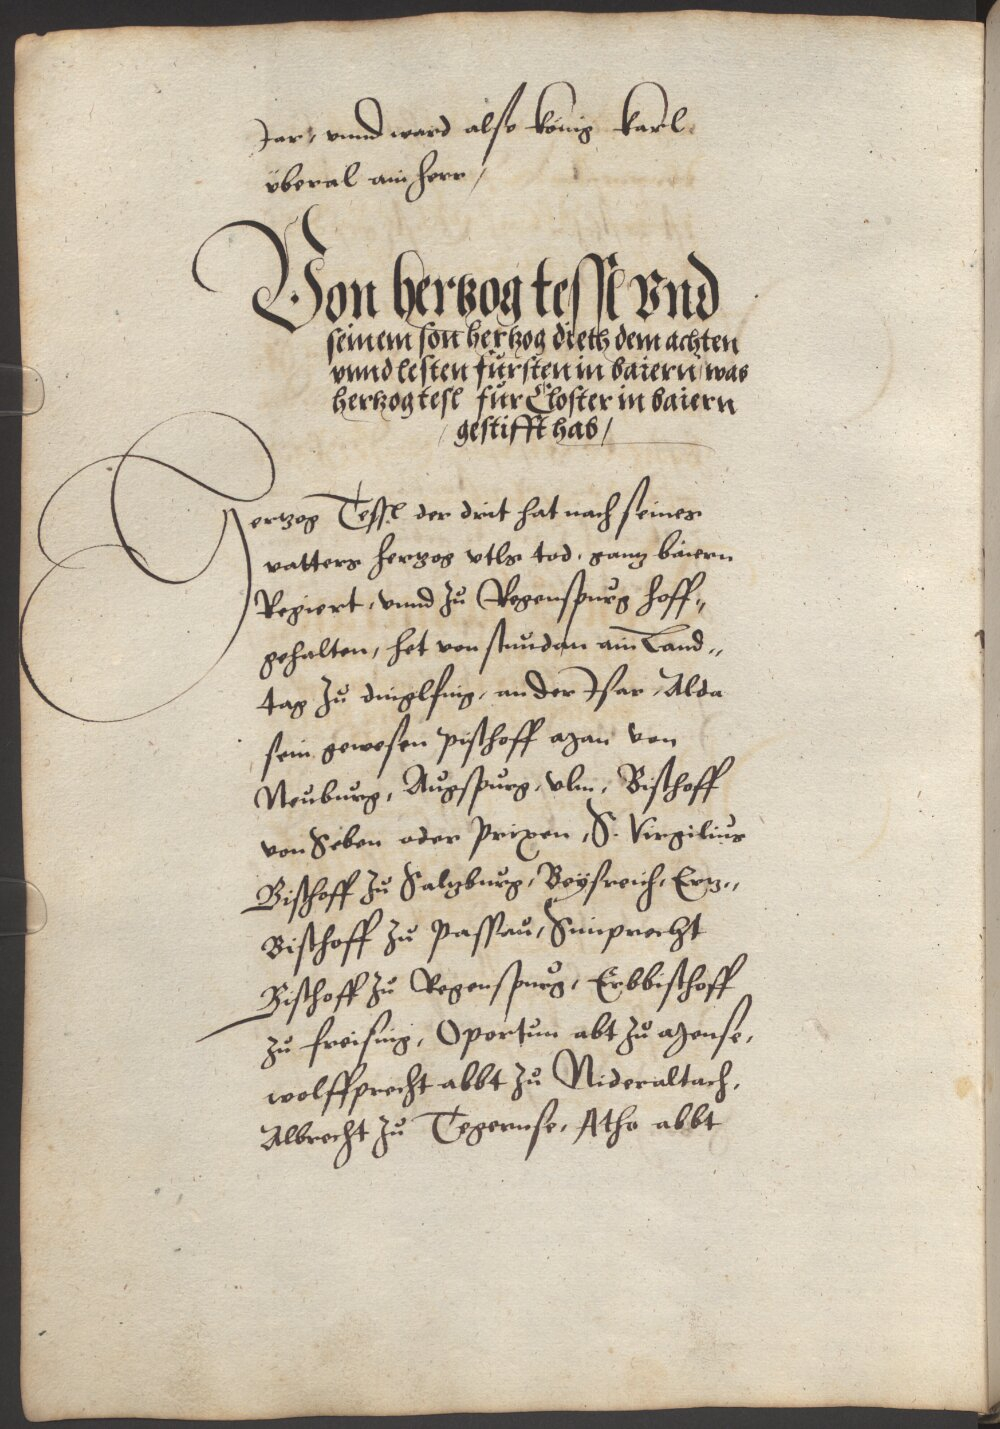 Jar, vnnd ward also König Karl
vberal ain herr /
Von hertzog tessl vnd
seinem son hertzog dieth dem achten
vnnd lesten fürsten in baiern / was
hertzog tesl für Closter in baiern
/ gestifft hab /
Hertzog Tessl der drit hat nach seines
vatters hertzog vtls tod, gantz baiern
Regiert, vnnd zu Regenspurg hoff„
gehalten, het von stundan ain Land„
tag zu dinglfing, an der Isar, Alda
sein gewesen Pischoff Man von
Neuburg, Augspurg, vlm, Bischoff
von Seben oder Prixen, S. Virgilius
Bischoff zu Saltzburg, Weysreich, Ertz„
Bischoff zu Passau, Simprecht
Bischoff zu Regenspurg, Erbbischoff
zu freising, Oportun abt zu Mense,
wolffprecht abbt zu Nideraltach,
Albrecht zu Tegernse, Atho abbt